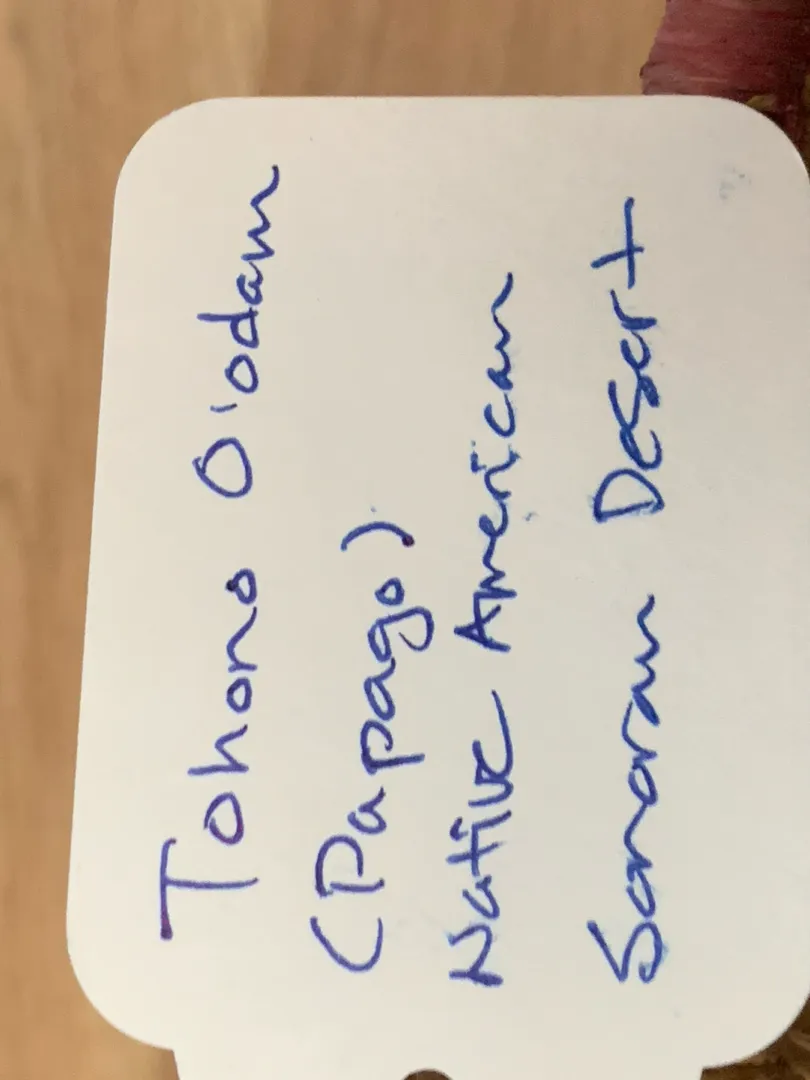 Tohono O'odam
(Papago)
Native American
Sonoran Desert